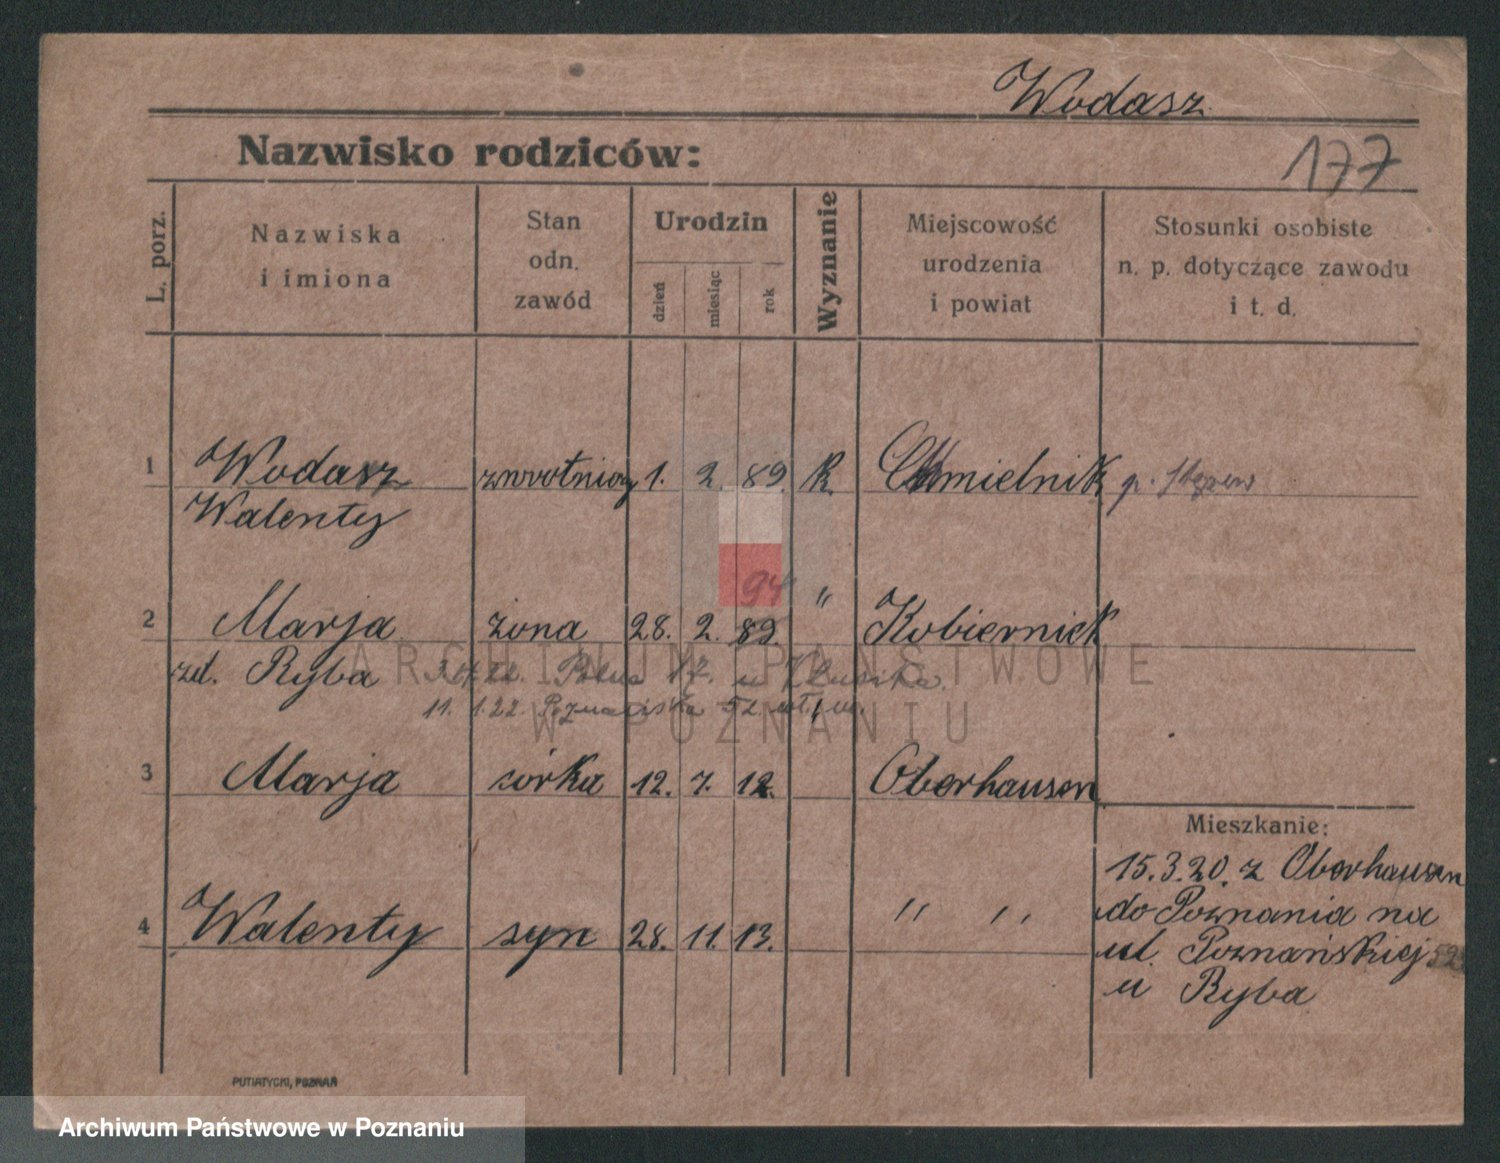 Wodasz
177
Nazwisko rodziców:
L. porz.
Nazwiska
i imiona
Stan
odn.
zawód
Urodzin
dzień
miesiąc
rok
Wyznanie
Miejscowość
urodzenia
i powiat
Stosunki osobiste
n. p. dotyczące zawodu
i t. d.
1 Wodasz zwrotniczy 1. 2. 89. R. Chmielnik p.
Walenty
94
2 Marja żona 28. 2. 89. " Kobiernick
zd. Ryba
u
11. 1.22. Poznańska 52
3 Marja córka 12. 7. 12. Oberhausen
Mieszkanie:
15.3.20. z Oberhausen
do Poznania na
ul. Poznańskiej 52
u Ryba
4 Walenty syn 28. 11. 13. " "
PUTIATYCKI, POZNAŃ
ARCHIWUM PAŃSTWOWE
W POZNANIU
Archiwum Państwowe w Poznaniu